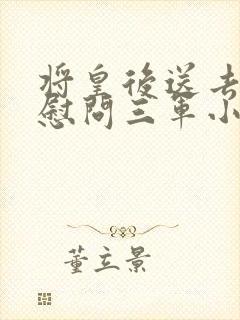 将皇後送去
慰問三軍小
董立景